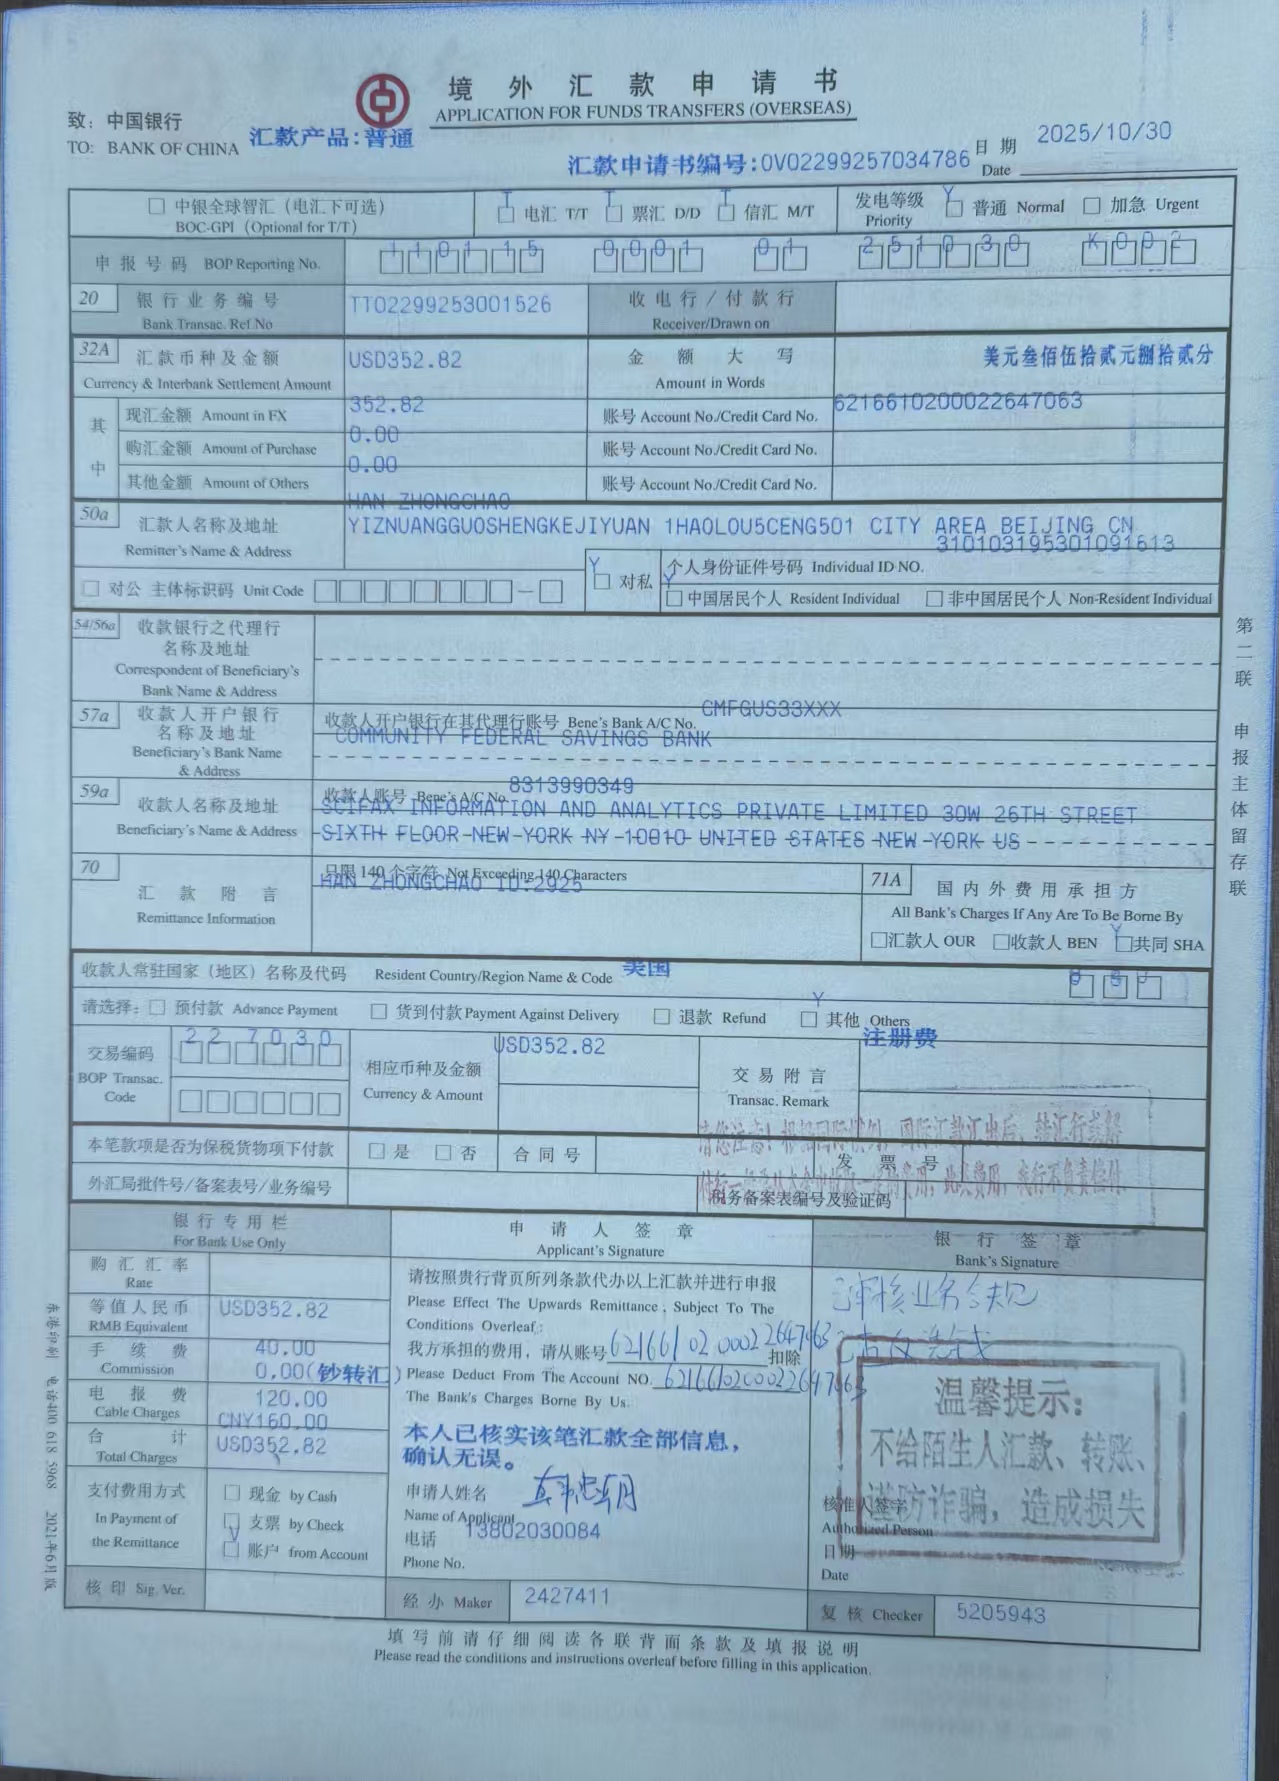 境外汇款申请书
APPLICATION FOR FUNDS TRANSFERS (OVERSEAS)
致：中国银行
TO: BANK OF CHINA
汇款产品:普通
汇款申请书编号:0V02299257034786
日期 Date 2025/10/30
中银全球智汇（电汇下可选）
BOC-GPI (Optional for T/T)
T 电汇 T/T T 票汇 D/D T 信汇 M/T
发电等级 Priority Y 普通 Normal 加急 Urgent
申报号码 BOP Reporting No. 110115 0001 01 251030 K002
20 银行业务编号 Bank Transac. Ref.No TT02299253001526
收电行/付款行 Receiver/Drawn on
32A 汇款币种及金额 Currency & Interbank Settlement Amount USD352.82
金额大写 Amount in Words 美元叁佰伍拾贰元捌拾贰分
其中
现汇金额 Amount in FX 352.82
账号 Account No./Credit Card No. 6216610200022647063
购汇金额 Amount of Purchase 0.00
账号 Account No./Credit Card No.
其他金额 Amount of Others 0.00
账号 Account No./Credit Card No.
50a 汇款人名称及地址 Remitter's Name & Address
HAN ZHONGCHAO
YIZNUANGGUOSHENGKEJIYUAN 1HAOLOU5CENG501 CITY AREA BEIJING CN
310103195301091613
对公 主体标识码 Unit Code
Y 对私
个人身份证件号码 Individual ID NO.
Y 中国居民个人 Resident Individual 非中国居民个人 Non-Resident Individual
54/56a 收款银行之代理行
名称及地址
Correspondent of Beneficiary's
Bank Name & Address
57a 收款人开户银行
名称及地址
Beneficiary's Bank Name
& Address
收款人开户银行在其代理行账号 Bene's Bank A/C No. CMFGUS33XXX
COMMUNITY FEDERAL SAVINGS BANK
59a 收款人名称及地址
Beneficiary's Name & Address
收款人账号 Bene's A/C No. 8313990349
SCIFAX INFORMATION AND ANALYTICS PRIVATE LIMITED 30W 26TH STREET
SIXTH FLOOR NEW YORK NY 10010 UNITED STATES NEW YORK US
70 汇款附言
Remittance Information
只限140个字符 Not Exceeding 140 Characters
HAN ZHONGCHAO ID-2925
71A 国内外费用承担方
All Bank's Charges If Any Are To Be Borne By
汇款人 OUR 收款人 BEN Y 共同 SHA
收款人常驻国家（地区）名称及代码 Resident Country/Region Name & Code 美国
请选择: 预付款 Advance Payment 货到付款 Payment Against Delivery 退款 Refund Y 其他 Others
交易编码
BOP Transac.
Code
227030
相应币种及金额
Currency & Amount
USD352.82
交易附言
Transac. Remark
注册费
请您注意！根据国际惯例，国际汇款汇出后，转汇行或解
本笔款项是否为保税货物项下付款 是 否 合同号 发票号
外汇局批件号/备案表号/业务编号 税务备案表编号及验证码
银行专用栏
For Bank Use Only
申请人签章
Applicant's Signature
银行签章
Bank's Signature
购汇汇率
Rate
等值人民币
RMB Equivalent
USD352.82
手续费
Commission
40.00
0.00(钞转汇)
电报费
Cable Charges
120.00
CNY160.00
合计
Total Charges
USD352.82
支付费用方式
In Payment of
the Remittance
现金 by Cash
支票 by Check
账户 from Account
核印 Sig. Ver.
请按照贵行背页所列条款代办以上汇款并进行申报
Please Effect The Upwards Remittance, Subject To The
Conditions Overleaf:
我方承担的费用，请从账号 6216610200022647063 扣除
Please Deduct From The Account NO. 6216610200022647063
The Bank's Charges Borne By Us.
本人已核实该笔汇款全部信息，
确认无误。
申请人姓名
Name of Applicant
电话 13802030084
Phone No.
经办 Maker 2427411
温馨提示：
不给陌生人汇款、转账、
谨防诈骗，造成损失
核准人签字
Authorized Person
日期
Date
复核 Checker 5205943
填写前请仔细阅读各联背面条款及填报说明
Please read the conditions and instructions overleaf before filling in this application.
第二联 申报主体留存联
电话400 618 5968 2021年6月版